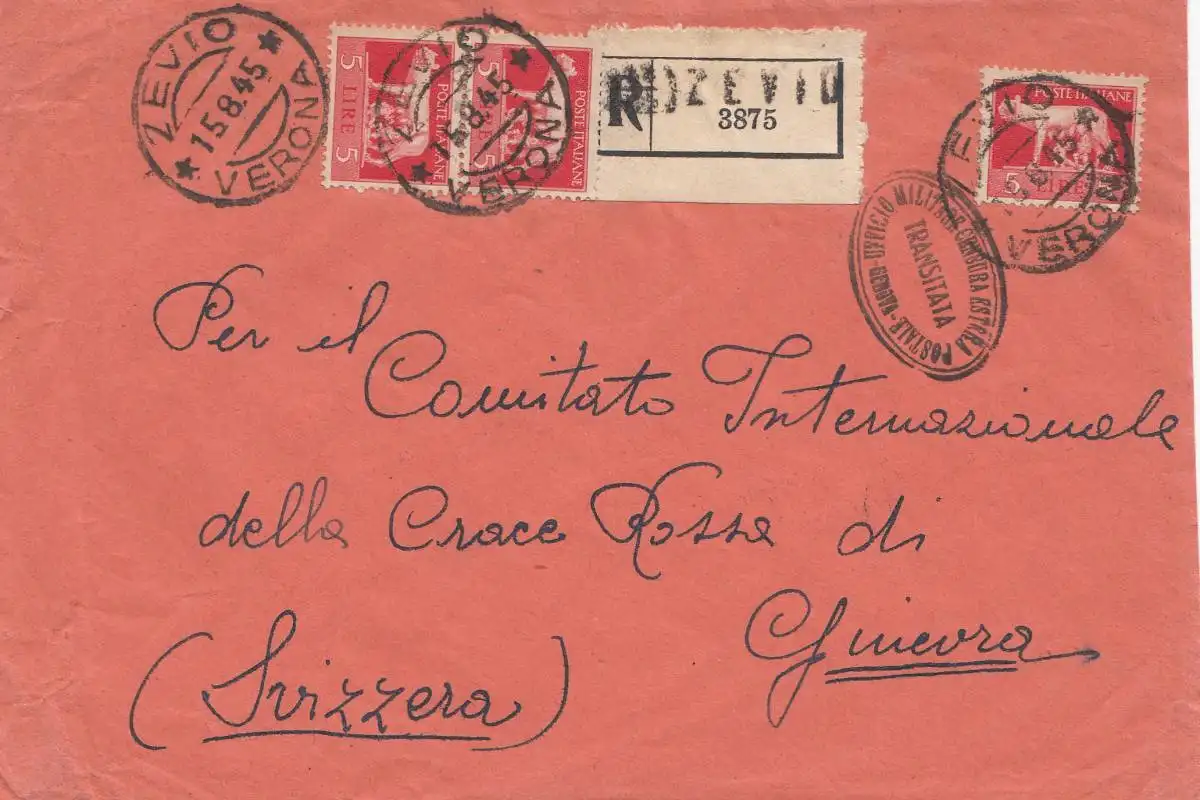 ZEVIO
15.8.45
VERONA
5 LIRE 5
POSTE ITALIANE
ZEVIO
15.8.45
VERONA
5
POSTE ITALIANE
R
ZEVIO
3875
POSTE ITALIANE
5 LIRE
VERONA
UFFICIO CENSURA ESTERA POSTALE
TRANSITATA
Per il
Comitato Internazionale
della Croce Rossa di
Ginevra
(Svizzera)